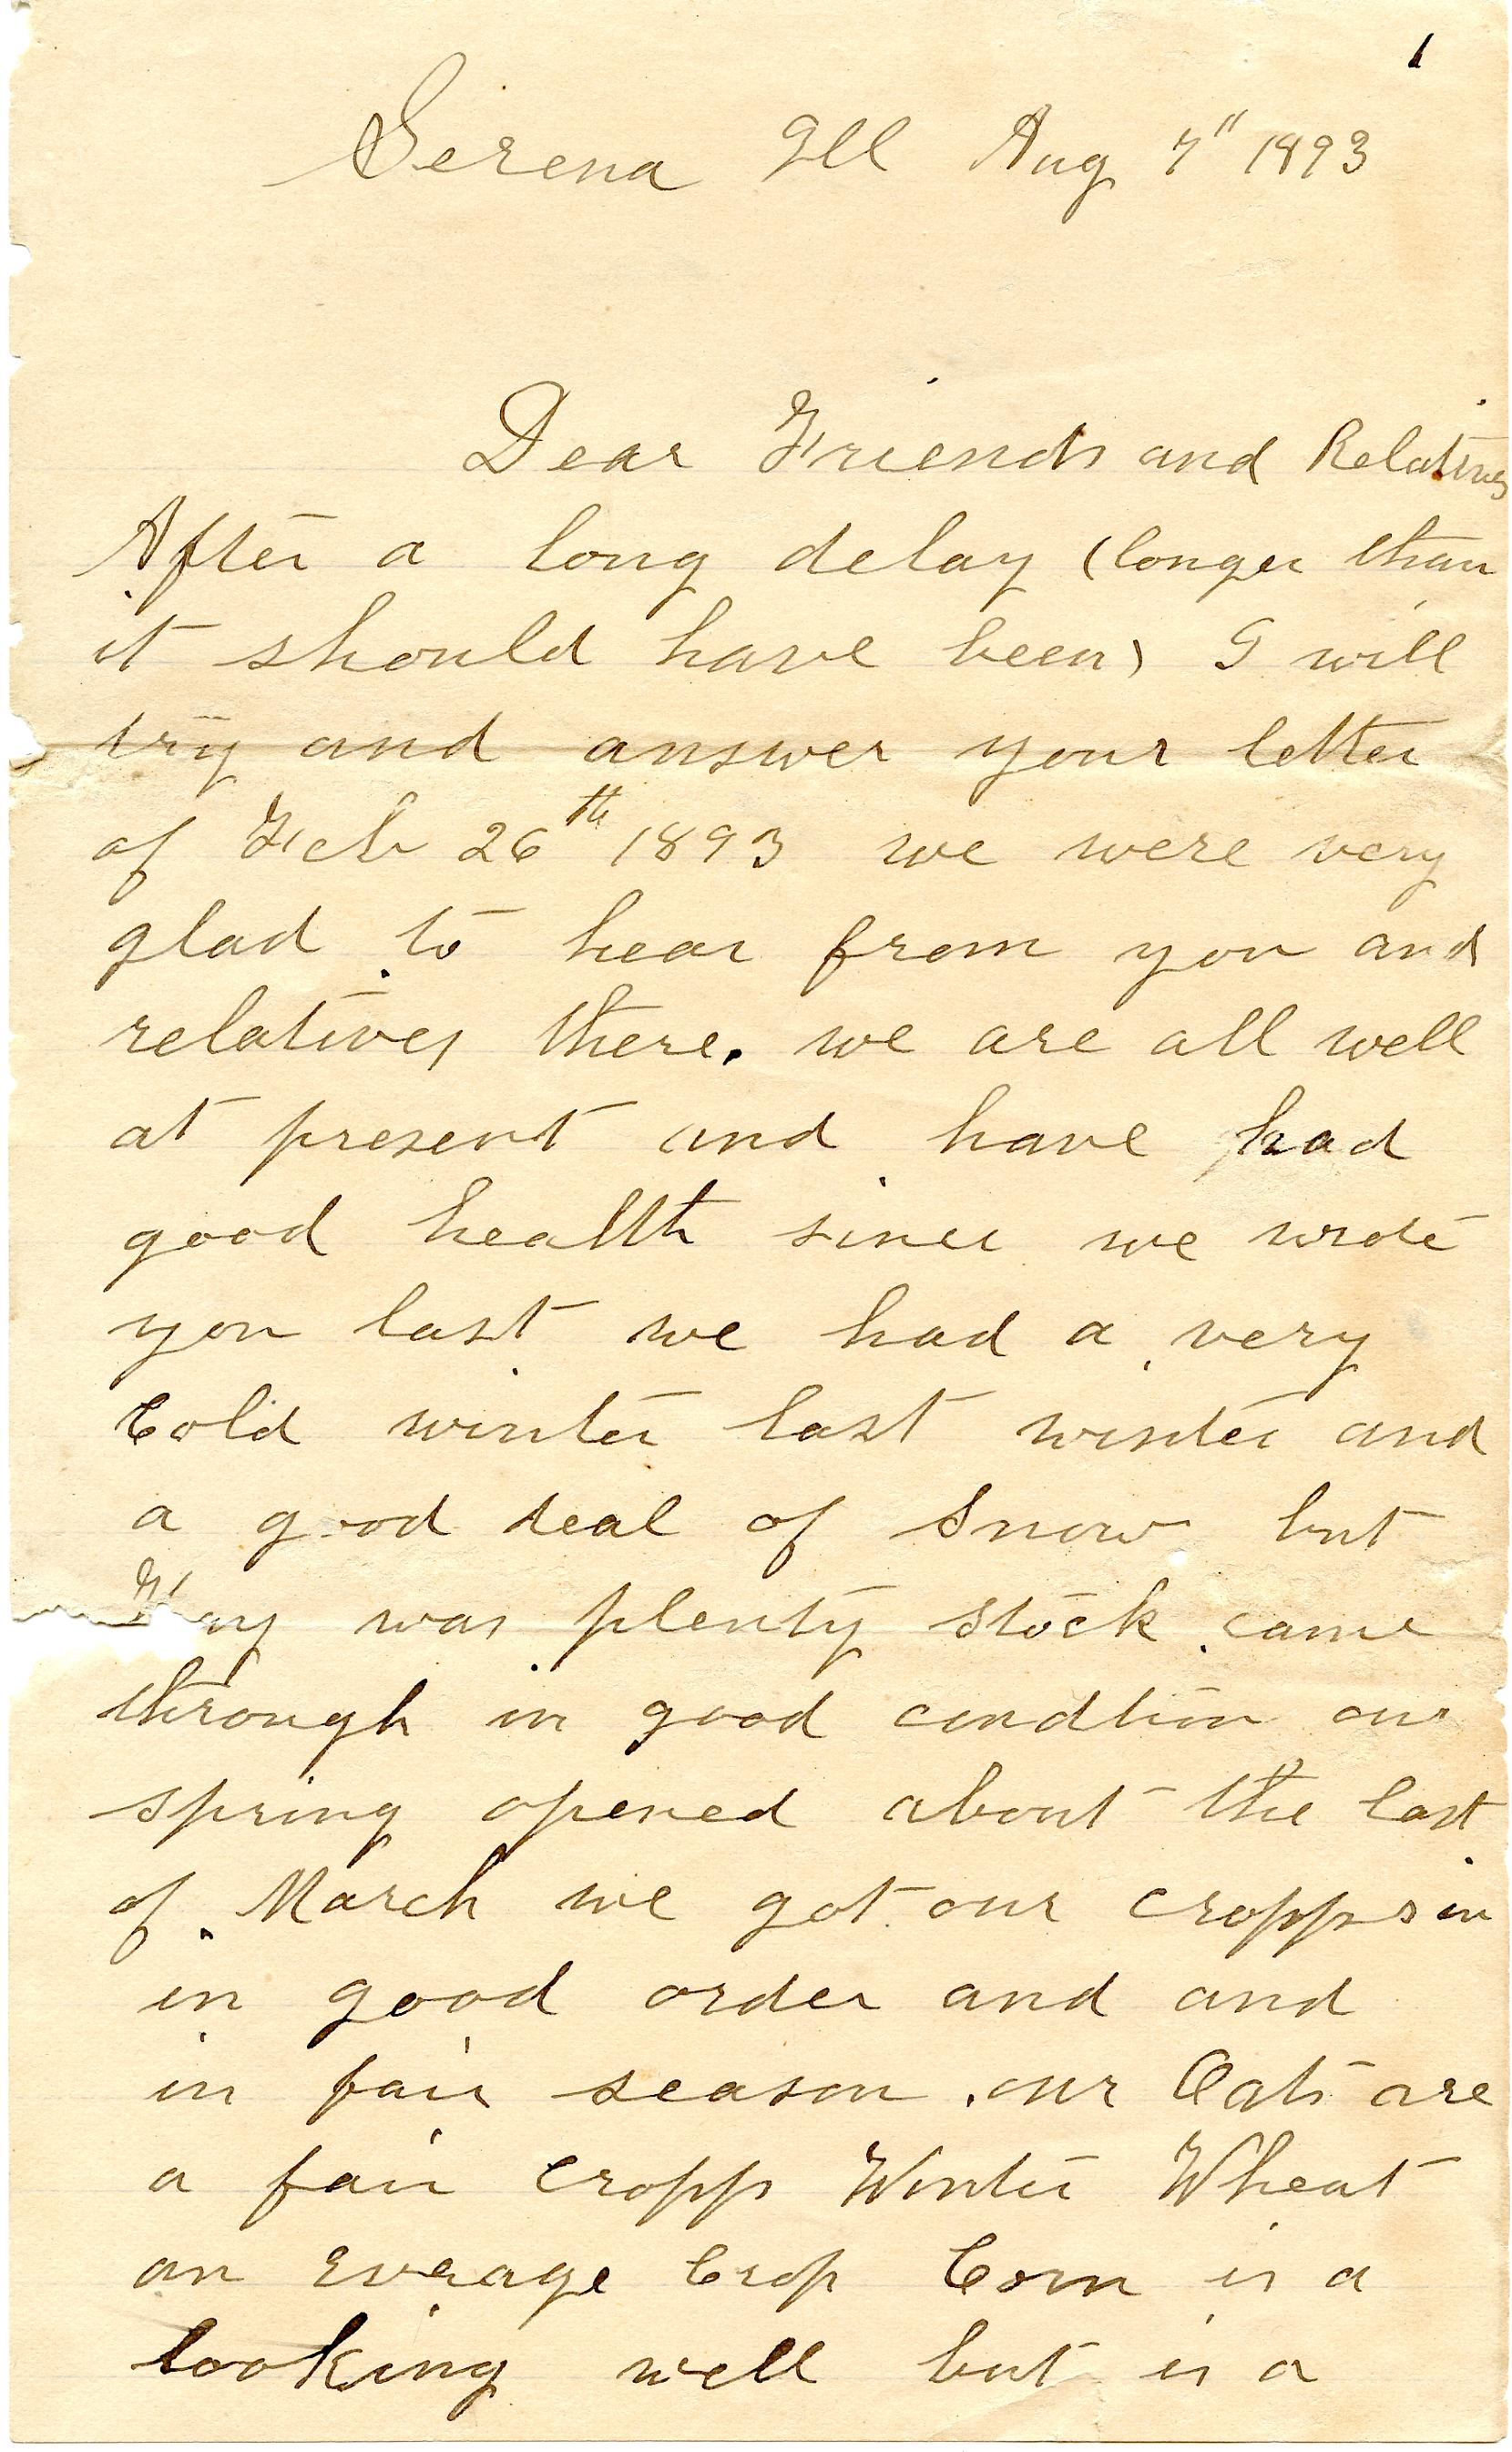 1
Serena Ill Aug 7" 1893
Dear Friends and Relatives
After a long delay (longer than
it should have been) I will
try and answer your letter
of Feb 26th 1893 we were very
glad to hear from you and
relatives there. we are all well
at present and have had
good health since we wrote
you last we had a very
Cold winter last winter and
a good deal of Snow but
Hay was plenty stock came
through in good condtion our
spring opened about the last
of March we got our cropps in
in good order and and
in fair season . our Oats are
a fair cropp Winter Wheat
an everage Crop Corn is a
looking well but is a